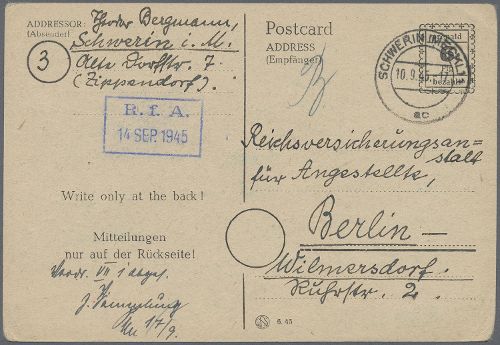 ADDRESSOR: Theodor Bergmann,
(Absender)
Schwerin i. M.
3
Alte Dorfstr. 7
(Zippendorf).
R. f. A.
14 SEP. 1945
Write only at the back!
Mitteilungen
nur auf der Rückseite!
VII
17/9.
Postcard
ADDRESS
(Empfänger)
SCHWERIN (MECKL) 1
10.9.45
ac
Reichsversicherungsan-
stalt
für Angestellte,
Berlin —
Wilmersdorf.
Ruhrstr. 2.
6.45